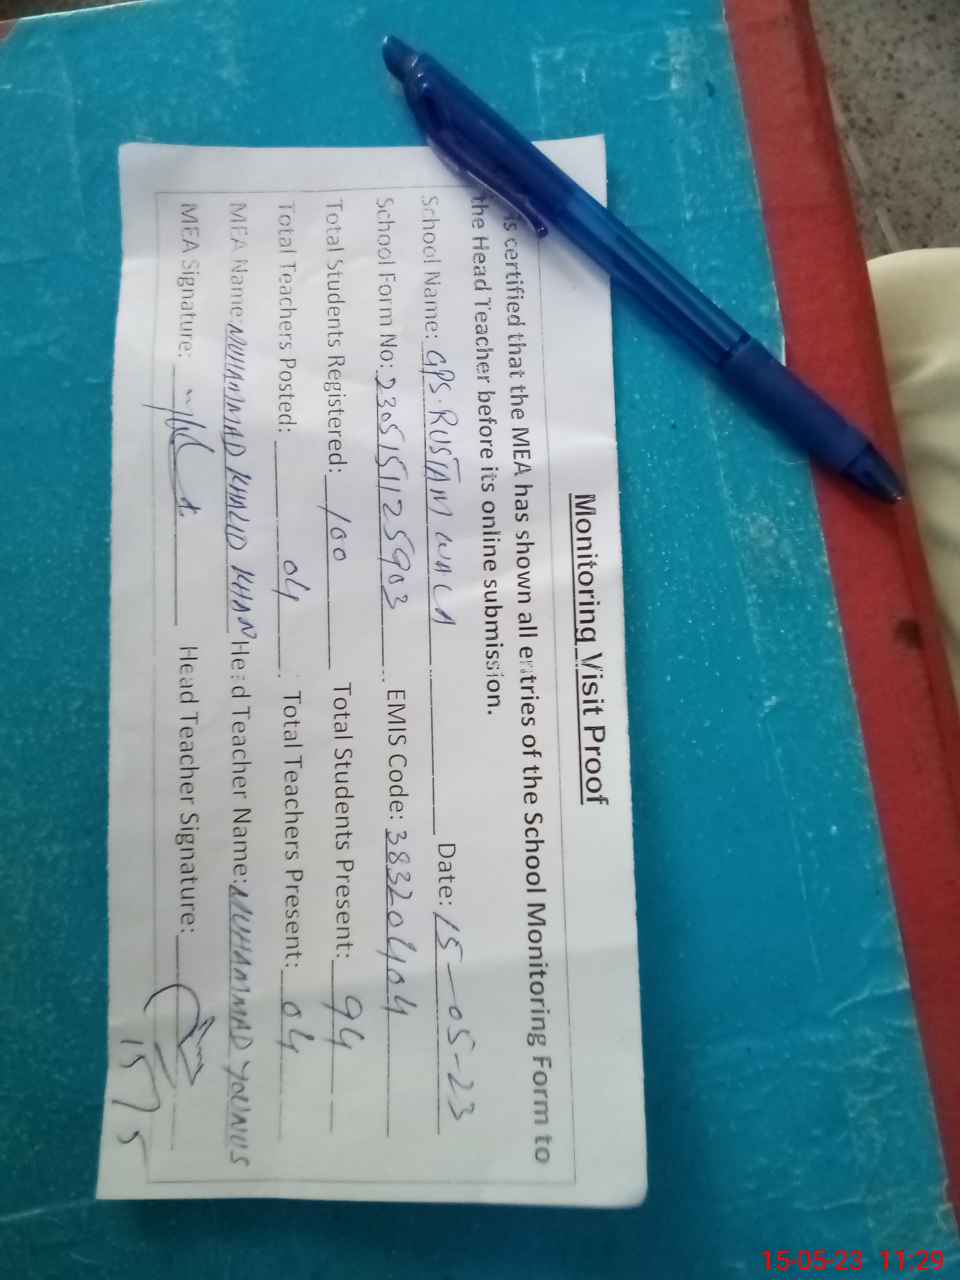 Monitoring Visit Proof
is certified that the MEA has shown all entries of the School Monitoring Form to
the Head Teacher before its online submission.
School Name: GPS. RUSTAM WALA Date: 15-05-23
School Form No: 2305151125903 EMIS Code: 38320404
Total Students Registered: 100 Total Students Present: 94
Total Teachers Posted: 04 Total Teachers Present: 04
MEA Name: MUHAMMAD KHALID KHAN Head Teacher Name: MUHAMMAD YOUNUS
MEA Signature: Head Teacher Signature:
15/5
15-05-23 11:29